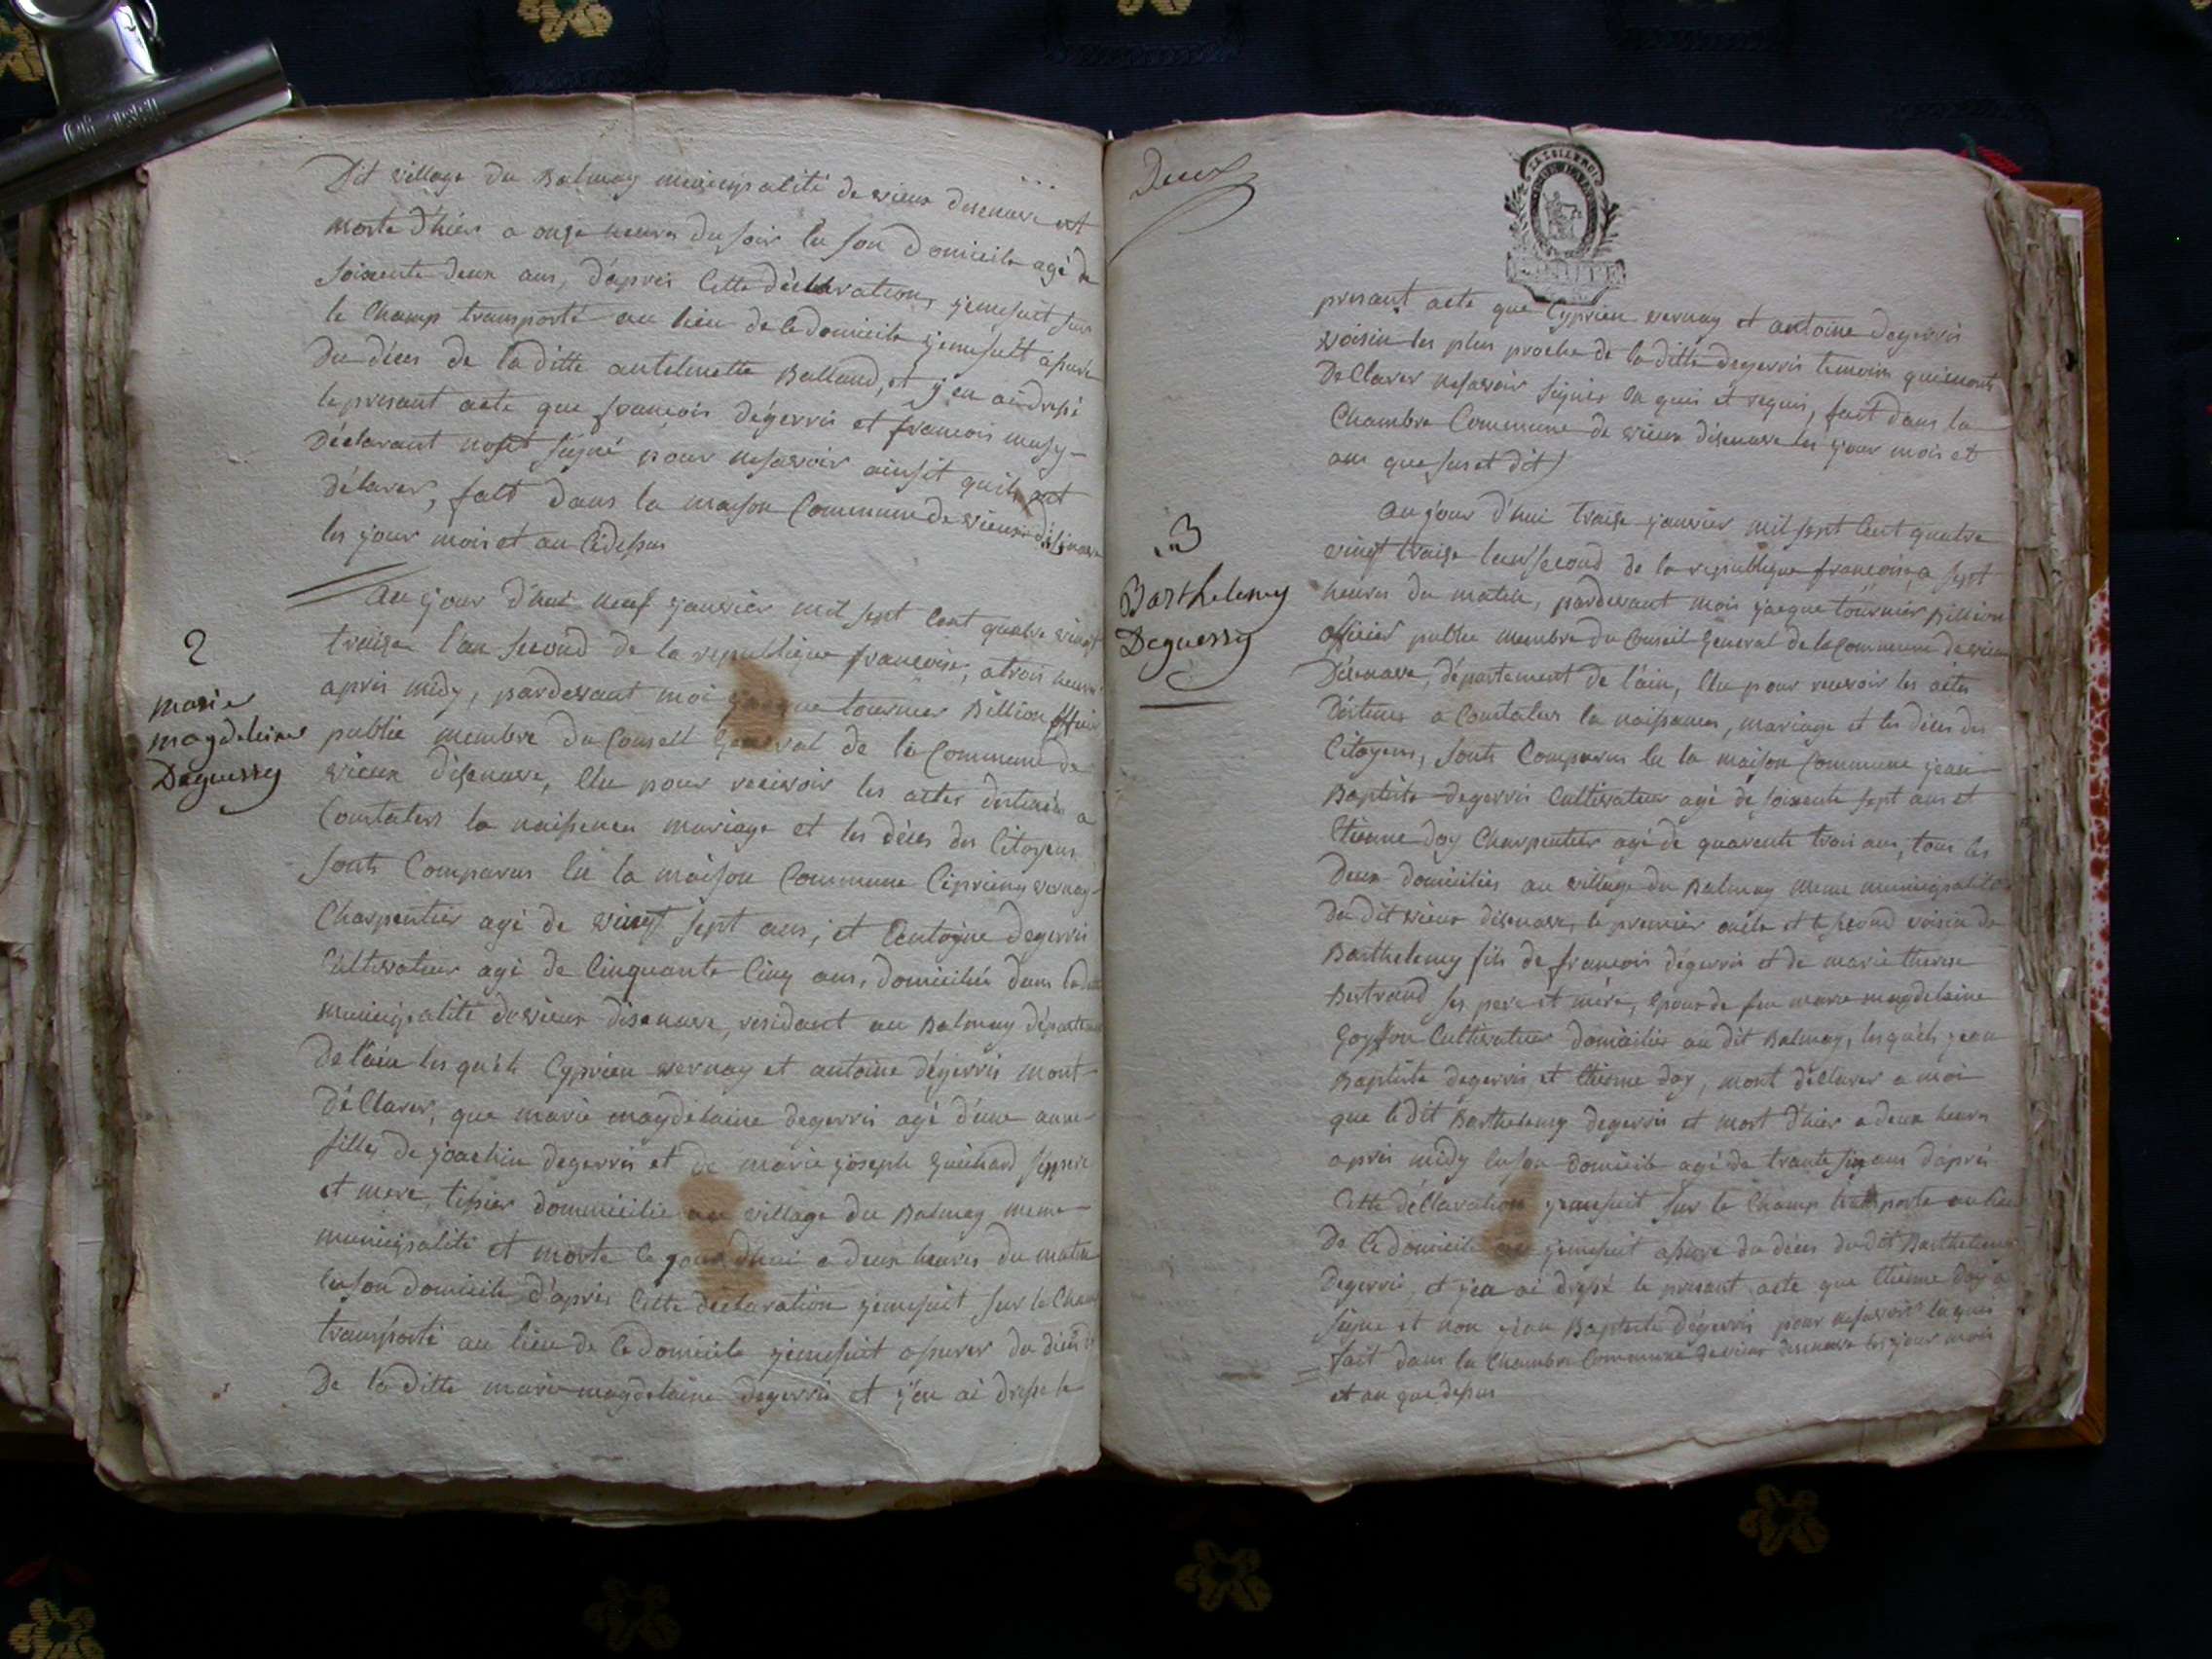 Dit village du Balmay municipalité de vieux disenave est
morte d'hier a onze heures du soir en son domicile agé de
soixente deux ans, d'apres cette déclaration, jemesuit sur
le champ transporté au lieu de ce domicile jemesuit assuré
du déces de la ditte antelmette Balland, et j'en ai dressé
le presant acte que françois dégerris et françois musy
déclarant nont signé pour nesavoir ainsit quils ont
délarer, fait dans la maison commune de vieux disenave
les jour mois et an cidessus
2
marie
magdelaine
Deguerry
Au jour d'hui neuf janvier mil sept cent quatre vingt
traise l'an second de la republique françoise, a trois heures
apris midy, pardevant moi jacque tournier Billion officier
public membre du conseil general de la commune de
vieux disenave, élu pour recivoir les actes destinés a
constaters la naissences mariage et les déces des citoyens
sonts comparus en la maison commune ciprien vernay
charpentier agé de vingt sept ans, et antoine degerris
cultivateur agé de cinquante cinq ans, domiciliés dans la ditte
municipalité devieux disenave, residant au Balmay départem
de l'ain les quels Cyprien vernay et antoine dégerris mont
déclarer, que marie magdelaine degerris agé d'une anné
fille de joachin degerris et de marie joseph guichard ses pere
et mere, tissier dommicilié au village du Balmay meme
municipalité et morte ce jour dhui a deux heures du matin
en son domicile d'apris cette déclaration jemesuit sur le champ
transporté au lieu de ce domicile jemesuit assurer du déces
De la ditte marie magdelaine degerris et j'en ai dresse le
Deux
LA LOI LE ROI
presant acte que Cyprien vernay et antoine degerris
voisin les plus proche de la ditte degerris temoins quimonts
déclarer nesavoir signer en quis et requis, fait dans la
chambre commune de vieux disenave les jour mois et
ans que sus et dit
3
Barthelemy
Deguerry
Au jour d'hui traise janvier mil sept cent quatre
vingt traise l'an second de la republique françoise, a sept
heures du matin, pardevant moi jacque tournier Billion
officier public membre du conseil general de la commune de vieux
Disenave, département de l'ain, élu pour recevoir les actes
destines a constaters la naissances, mariage et les déces des
citoyens, sonts comparus en la maison commune jean
Baptiste degerris cultivateur agé de soixente sept ans et
étienne doy charpentier agé de quarente trois ans, tous les
deux domicilies au village du Balmay meme municipalité
du dit vieux disenave, le premier oncle et le second voisin de
Barthelemy fils de françois dégerris et de marie therese
Bertrand ses pere et mére, époux de feu marie magdelaine
goyffon cultivateur domicilier au dit Balmay, les quels jean
Baptiste degerris et étienne doy, mont déclarer a moi
que le dit Barthelemy degerris et mort d'hier a deux heures
apris midy en son domicile agé de trante six ans d'apres
cette déclaration jemesuit sur le champ transporte au lieu
de ce domicile jemesuit assure du déces du dit Barthelemy
Degerris et j'en ai dressé le presant acte que étienne doy a
signe et non jean Baptiste dégerris pour nesavoir en quis
fait dans la chambre commune de vieux disenave les jour mois
et an que dessus